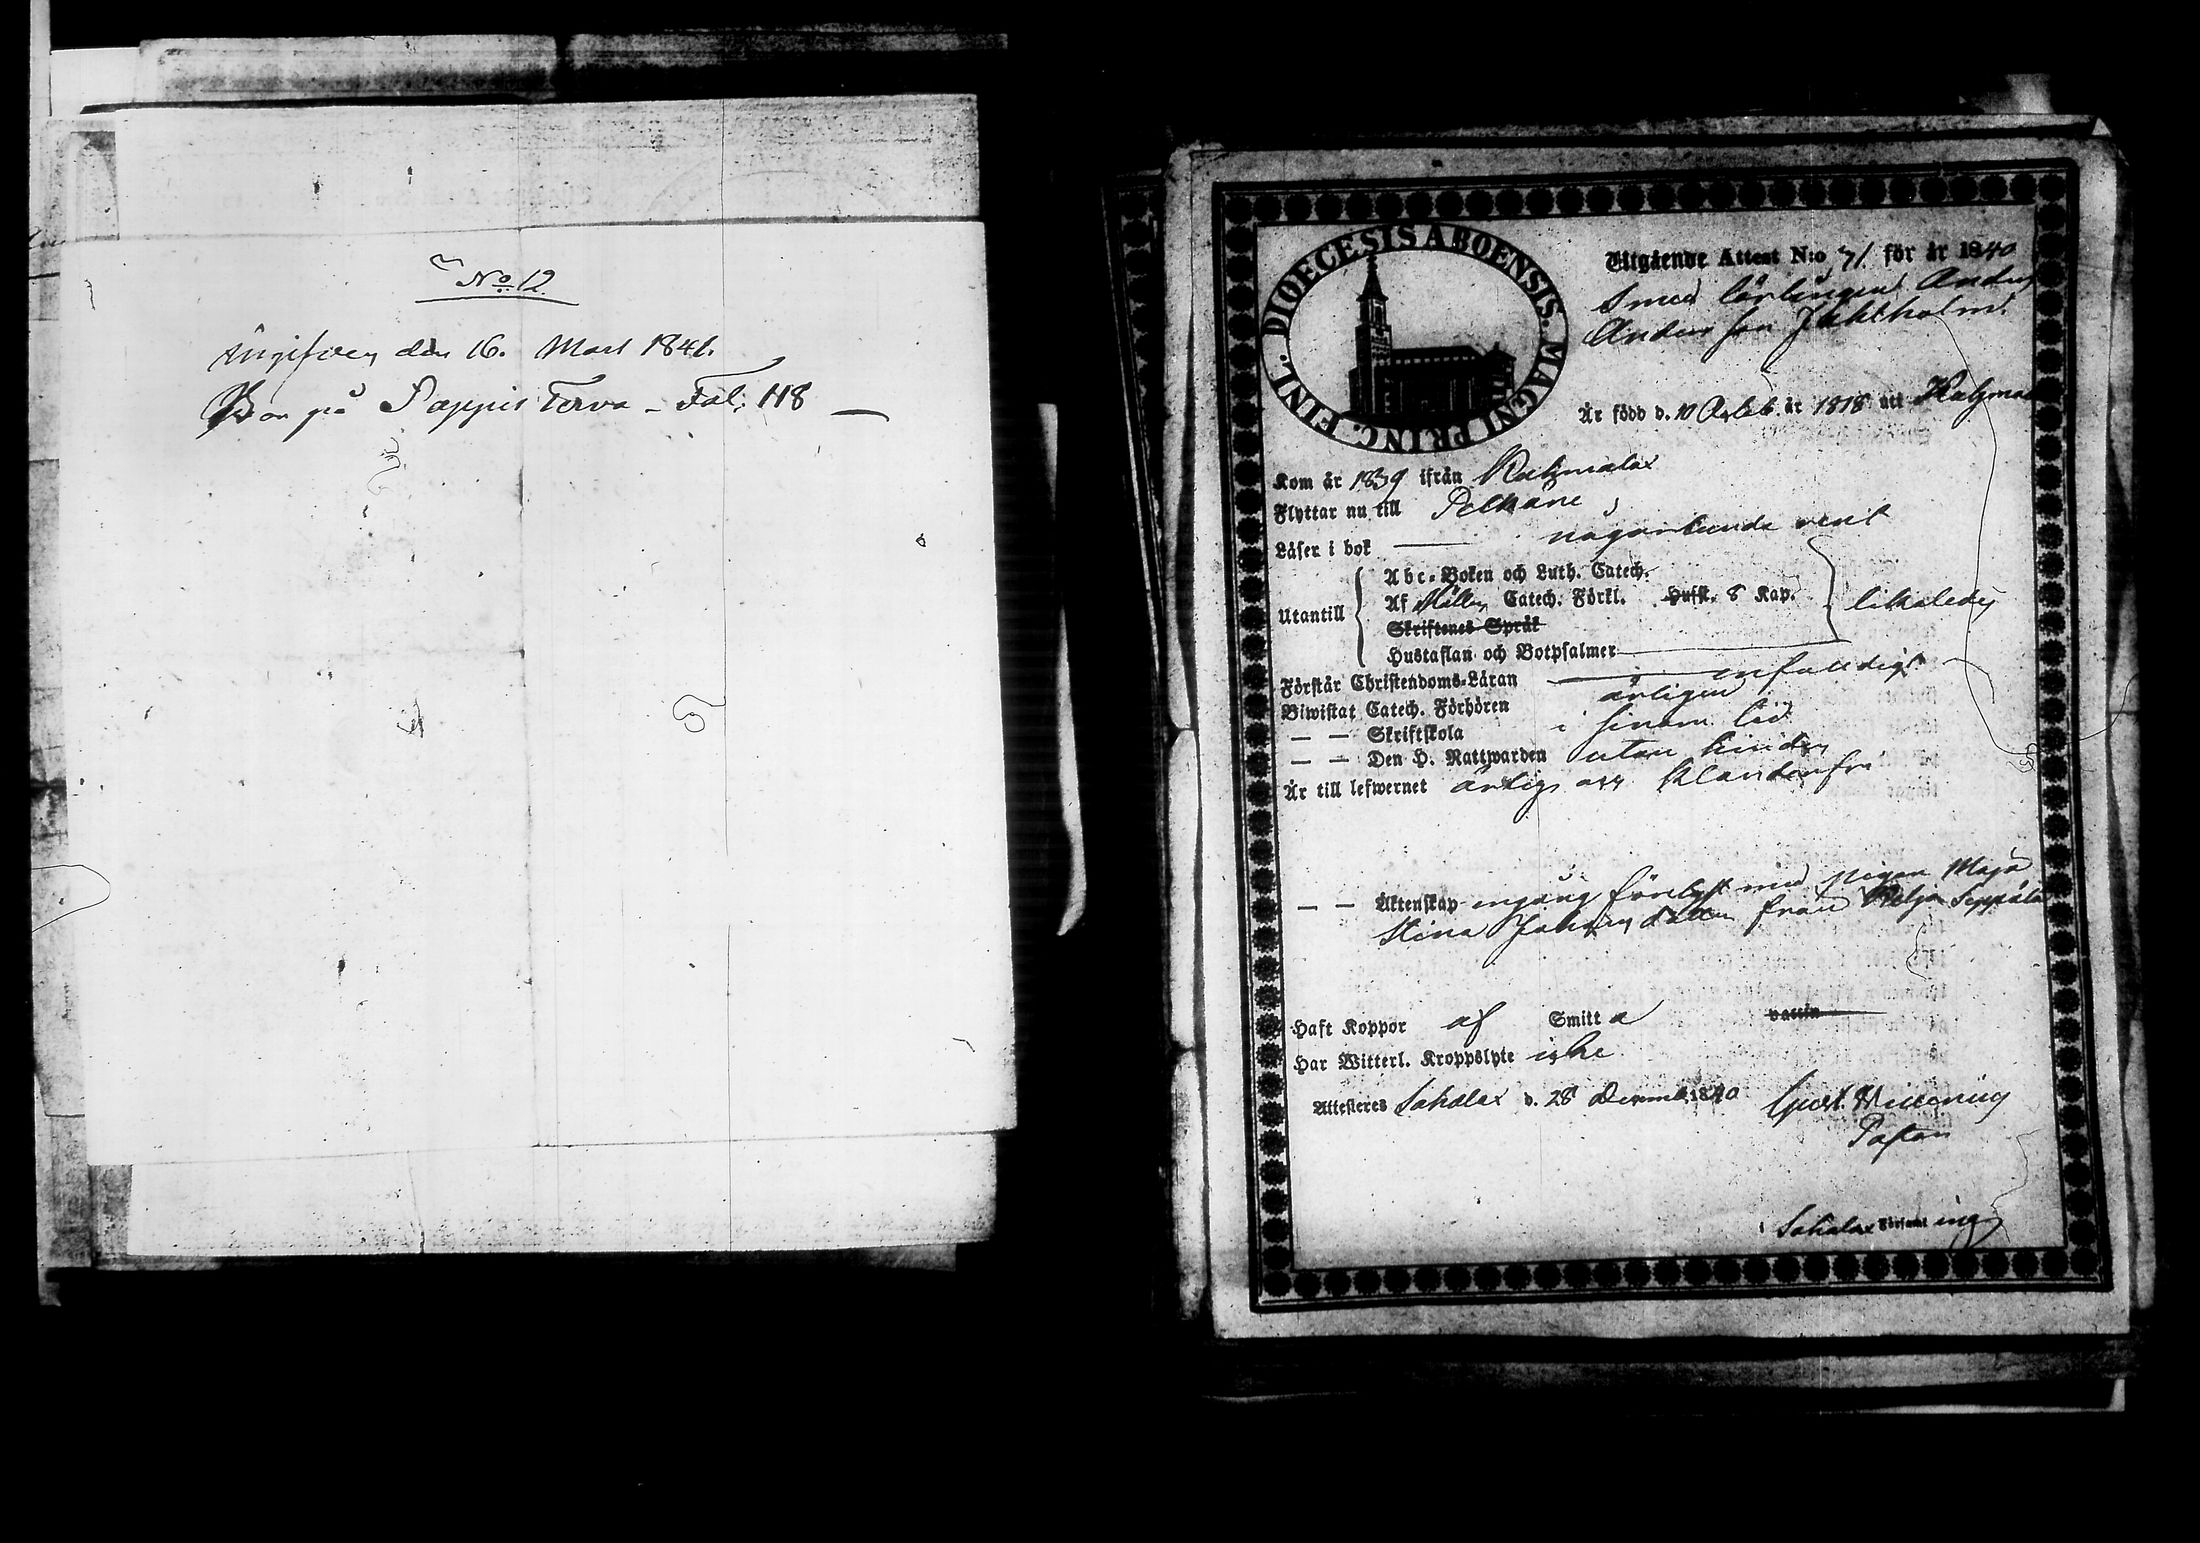 No 12.
Ingifven den 16. Mars 1841.
Bor på Pappis Torva – Fol: 118 —
DIOECESIS ABOENSIS. MAGNI PRINC. FINL.
Utgående Attest N:o 71. för år 1840
Smed lärlingen Anders
Andersson Jahtholm.
Är född d. 10 Octob år 1818 uti Kalzmal
Kom år 1839 ifrån Kalzmalax
Flyttar nu till Pelkäne
Läser i bok — någorlunda rent
Utantill
Abc-Boken och Luth. Catech.
Af Möllers Catech. Förkl. Hufst. 8 Kap. likaledes
Skriftenes Språk
Hustaflan och Botpsalmer
Förstår Christendoms-Läran — enfaldigt
Biwistat Catech. Förhören årligen
— — Skriftskola i sinom tid
— — Den H. Nattwarden utan hinder
Är till lefwernet ärlig och klanderfri
— — Äktenskap ingång förelyst med pigan Maja
Stina Johansdotter från Seppälä
Haft Koppor af Smitta vaccin
Har Witterl. Kroppslyte icke
Attesteres Sahalax d. 28 Decemb 1840
Pastor
i Sahalax Församling